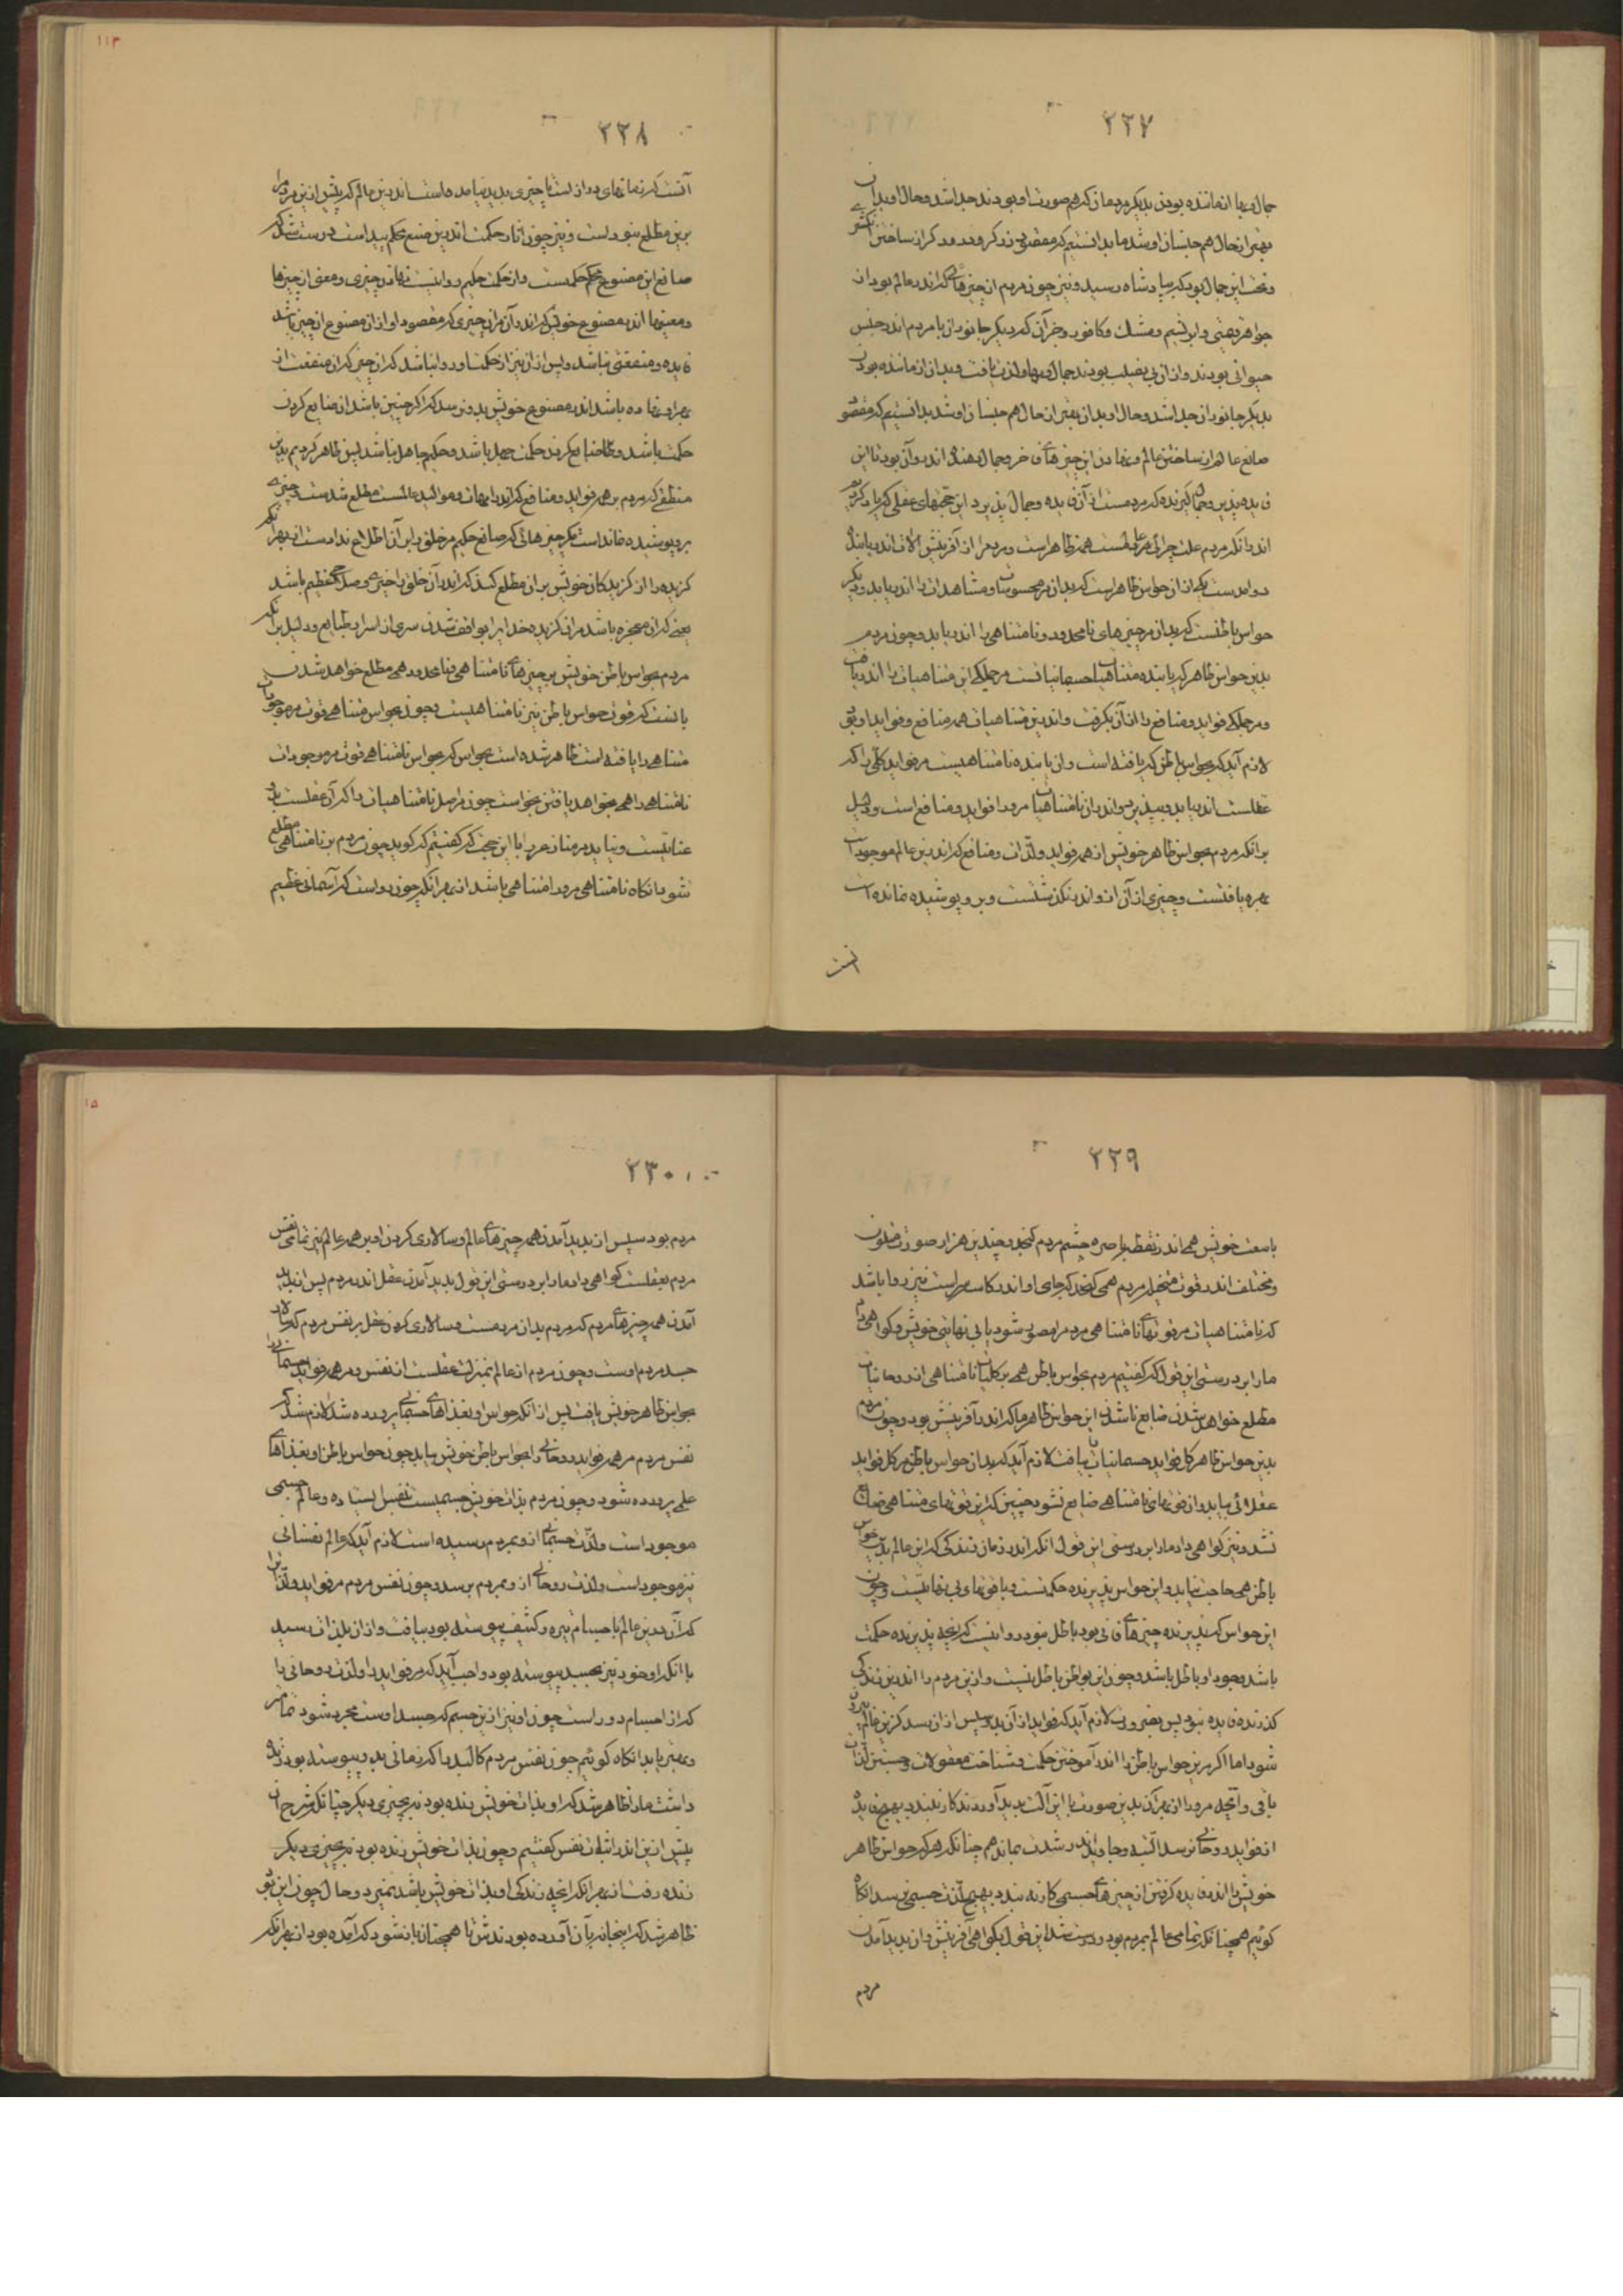 ۲۲۷
جمال و بها از ماننده بودن بدیگر مردمان که هم صورت او بودند جدا شد و حال او بدان
بهتر از حال هم جنسان او شد ما بدانستیم که مقصود زرگر و درودگر از ساختن
و تخت این جمال بود که بپادشاه رسید و نیز چون مردم از چیزهائی که اندر عالم بود از
جواهر قیمتی و ابریشم و مشک و کافور و جز آن که دیگر جانوران با مردم اندر جنس
حیوانی بودند و از آن بی نصیب بودند جمال و بها و لذت یافت و بدان از ماننده بودن
بدیگر جانوران جدا شد و حال او بدان بهتر از حال هم جنسان او شد بدانستیم که مقصود
صانع عالم از ساختن عالم و نهادن این چیزهای فاخر و جمال دهنده اندر و آن بود تا این
فایده پذیر و جمال گیرنده که مردمست از آن فایده و جمال پذیرد این حجتهای عقلی که یاد کردیم
اندر آنکه مردم علت چرائی مر عالمست همه ظاهر است و مردم را از آفرینش آلات اندر یابنده
دو آمدست یکی از آن حواس ظاهر است که بدان مر محسوسات و مشاهدات را اندر یابد و دیگر
حواس باطنست که بدان مر چیزهای نامحدود و نامتناهی را اندر یابد و چون مردم
بدین حواس ظاهر که یابنده متناهیات جسمانیانست مر جملگی این متناهیات را اندر یافت
و مر جملگی فواید و منافع را از آن بگرفت و اندرین متناهیات همه منافع و فواید او بود
لازم آید که بحواس باطن که یافته است و آن یابنده نامتناهیست مر فواید کلی را که
عقلست اندر یابد و بپذیرد و اندر آن نامتناهیات مرو را فواید و منافع است و دلیل
بر آنکه مردم بحواس ظاهر خویش از همه فواید و لذات و منافع که اندرین عالم موجودست
بهره یافتست و چیزی از آن از و اندر نگذشتست و برو پوشیده نمانده است
آنست
۱۱۳
۲۲۸
آنست که زمانهای دراز است تا چیزی پدید نیامده است اندرین عالم که پیش ازین مردم را
برین مطلع نبوداست و نیز چون آثار حکمت اندرین صنع محکم پیداست درست شد که
صانع این مصنوع محکم حکیمست و از حکمت حکیم روا نیست نهادن چیزی و معنی از چیزها
و معنیها اندر مصنوع خویش که اندر آن مر آن چیزی را که مقصود او از آن مصنوع آن چیز باشد
فایده و منفعتی نباشد و پس از آن نیز از حکمت او روا نباشد که آن چیز که آن منفعت از
بهر او نهاده باشد اندر مصنوع خویش بدو نرسد که اگر چنین باشد آن ضایع کردن
حکمت باشد و ضایع کردن حکمت جهل باشد و حکیم جاهل نباشد پس ظاهر کردیم بدین
منطق که مردم بر همه فواید و منافع که اندر امهات و موالید عالمست مطلع شدست و چیزی
برو پوشیده نماندست مگر چیزهائی که صانع حکیم مر خلق را بر آن اطلاع ندادست از بهر آنکه
گزیده را از گزیدگان خویش بر آن مطلع کند که اندر آن خلق را خیری و صلاحی عظیم باشد
یعنی که آن معجزه باشد مر آن گزیده خدایرا بواقف شدن سری از اسرار طبایع و دلیل بر آنکه
مردم بحواس باطن خویش بر چیزهای نامتناهی و نامحدود همی مطلع خواهد شدن
بآنست که قوت حواس باطن نیز نامتناهیست و چون بحواس متناهی قوت مر موجودات
متناهی را یافته است ظاهر شده است بحواس که بحواس نامتناهی قوت مر موجودات
نامتناهی را همی بخواهد یافتن بخواست چون مر اصل نامتناهیات را که آن عقلست برو
عنایتست و نیاید مر منازع را با این حجت که گفتیم که گوید چون مردم بر نامتناهی مطلع
شود آنگاه نامتناهی مرو را متناهی باشد از بهر آنکه چون رواست که آسمانی عظیم
۲۲۹
باسعت خویش همی اندر نقطه باصره چشم مردم گنجد و چندین هزار صورت ملون
و مختلف اندر قوت متخیل مردم همی گنجد که جای او اندر کاسه سر است نیز روا باشد
که نامتناهیات مر قوتهای نامتناهی مردم را مصور شود با بی نهایتی خویش و گواهی داد
ما را بر درستی این قول که گفتیم مردم بحواس باطن همی بر کلیات نامتناهی اندر روحانیات
مطلع خواهد شدن ضایع ناشدن این حواس ظاهر ما که اندر آفرینش بود و چون مردم
بدین حواس ظاهر کل فواید جسمانیات را بیافت لازم آید که بدان حواس باطن مر کل فواید
عقلانی بیابد و آن قوتهای نامتناهی ضایع نشود چنین که این قوتهای متناهی ضایع
نشد و نیز گواهی داد ما را بر درستی این قول آنکه اندر زمان زندگی که این عالم بدین حواس
باطن همی حاجت نیاید و این حواس پذیرنده حکمتست و با قوتهای بی نهایتست و چون
این حواس که پذیرنده چیزهای فانی بود باطل نبود روا نیست که آنچه پذیرنده حکمت
باشد وجود او باطل باشد و چون این بواطن باطل نیست و ازین مردم را اندرین زندگی
گذرنده فایده نبود پس بضرورت لازم آید که فواید از آن بدو سپس از آن رسد کزین عالم بیرون
شود اما اگر مرین حواس باطن را اندر آموختن حکمت و شناخت معقولات و جستن لذات
باقی و آنچه مرو را از بهر آن بدین صورت با این آلت پدید آوردند کار نبندد بهیچ فایده
از فواید روحانی نرسد البته و جاوید اندر شدت بماند هم چنانکه هر که حواس ظاهر
خویش را اندر فایده گرفتن از چیزهای جسمی کار نبندد بهیچ لذت جسمی نرسد آنگاه
گوئیم همچنانکه تمامی عالم بمردم بود و درست شد این قول بگواهی آفرینش و آن پدید آمدن
مردم
۲۳۰
مردم بود سپس از پدید آمدن همه چیزهای عالم و سالاری کردن او بر همه عالم نیز تمامی نفس
مردم بعقلست گواهی داد ما را بر درستی این قول پدید آمدن عقل اندر مردم پس از پدید
آمدن همه چیزهای مردم که مردم بدان مردمست و سالاری کردن عقل بر نفس مردم که سالار
جسد مردم اوست و چون مردم از عالم بمنزلت عقلست از نفس و مر همه فواید جسمانی را
بحواس ظاهر خویش یافت پس از آنکه حواس او بغذاهای جسمانی پرورده شد لازم شد که
نفس مردم مر همه فواید روحانی را بحواس باطن خویش بیابد چون حواس باطن او بغذاهای
علمی پرورده شود و چون مردم بذات خویش جسمیست بنفس ایستاده و عالم جسمی
موجود است و لذت جسمانی از و بمردم رسیده است لازم آید که عالم نفسانی
نیز موجود است و لذت روحانی از و بمردم برسد و چون نفس مردم مر فواید و لذات را
که آن درین عالم با اجسام تیره و کثیف پیوسته بود بیافت و از آن بلذات رسید
با آنکه او خود نیز بجسد پیوسته بود واجب آید که مر فواید را و لذت روحانی را
که از اجسام دور است چون او نیز ازین جسم که جسد اوست مجرد شود تمامتر
و بهتر یابد آنگاه گوئیم چون نفس مردم کالبد را که زمانی بدو پیوسته بود زنده
داشت ما را ظاهر شد که او بذات خویش زنده بود نه بچیزی دیگر چنانکه شرح آن
پیش ازین اندر اثبات نفس گفتیم و چون بذات خویش زنده بود نه بچیزی دیگر
زنده رفت از بهر آنکه آنچه زندگی او بذات خویش باشد نمیرد و حال چون این بود
ظاهر شد که اینجا نه بآن آورده بودندش تا همچنان باز شود که آمده بود از بهر آنکه
۱۵